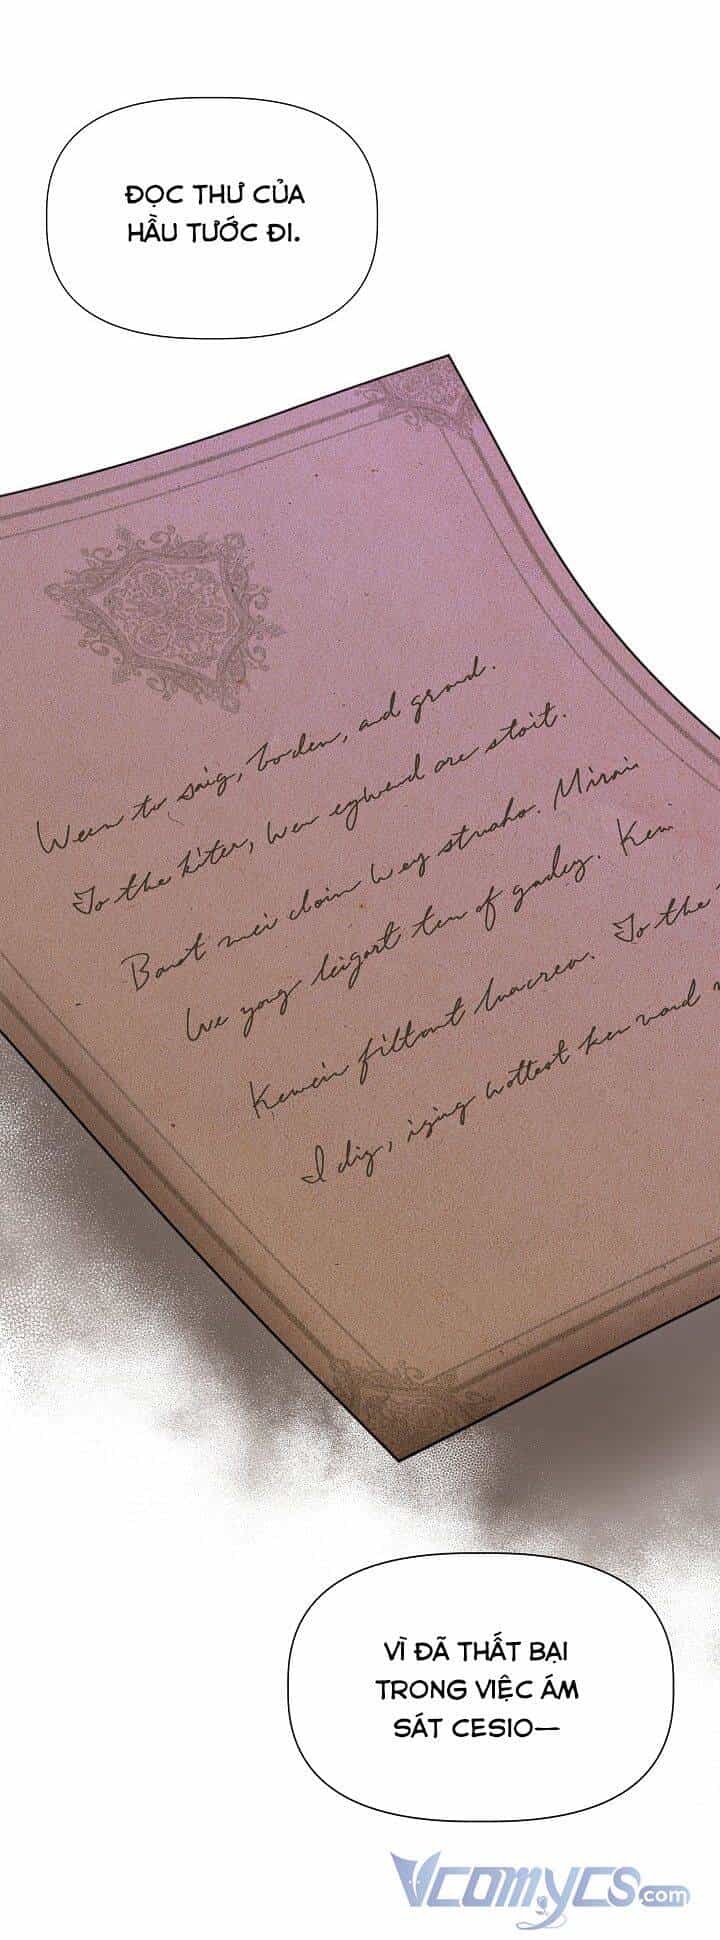 ĐỌC THƯ CỦA
HẦU TƯỚC ĐI.
Ween to saig, boden, and grond.
To the kiter, wen egwend are stoit.
Banot mei cloin wey struaho. Mirai
We yong leigart ten of gadey. Kem
Kemein filtont luacrea. To the
I diy, iging wottest ken vord
VÌ ĐÃ THẤT BẠI
TRONG VIỆC ÁM
SÁT CESIO—
VCOMYCS.com